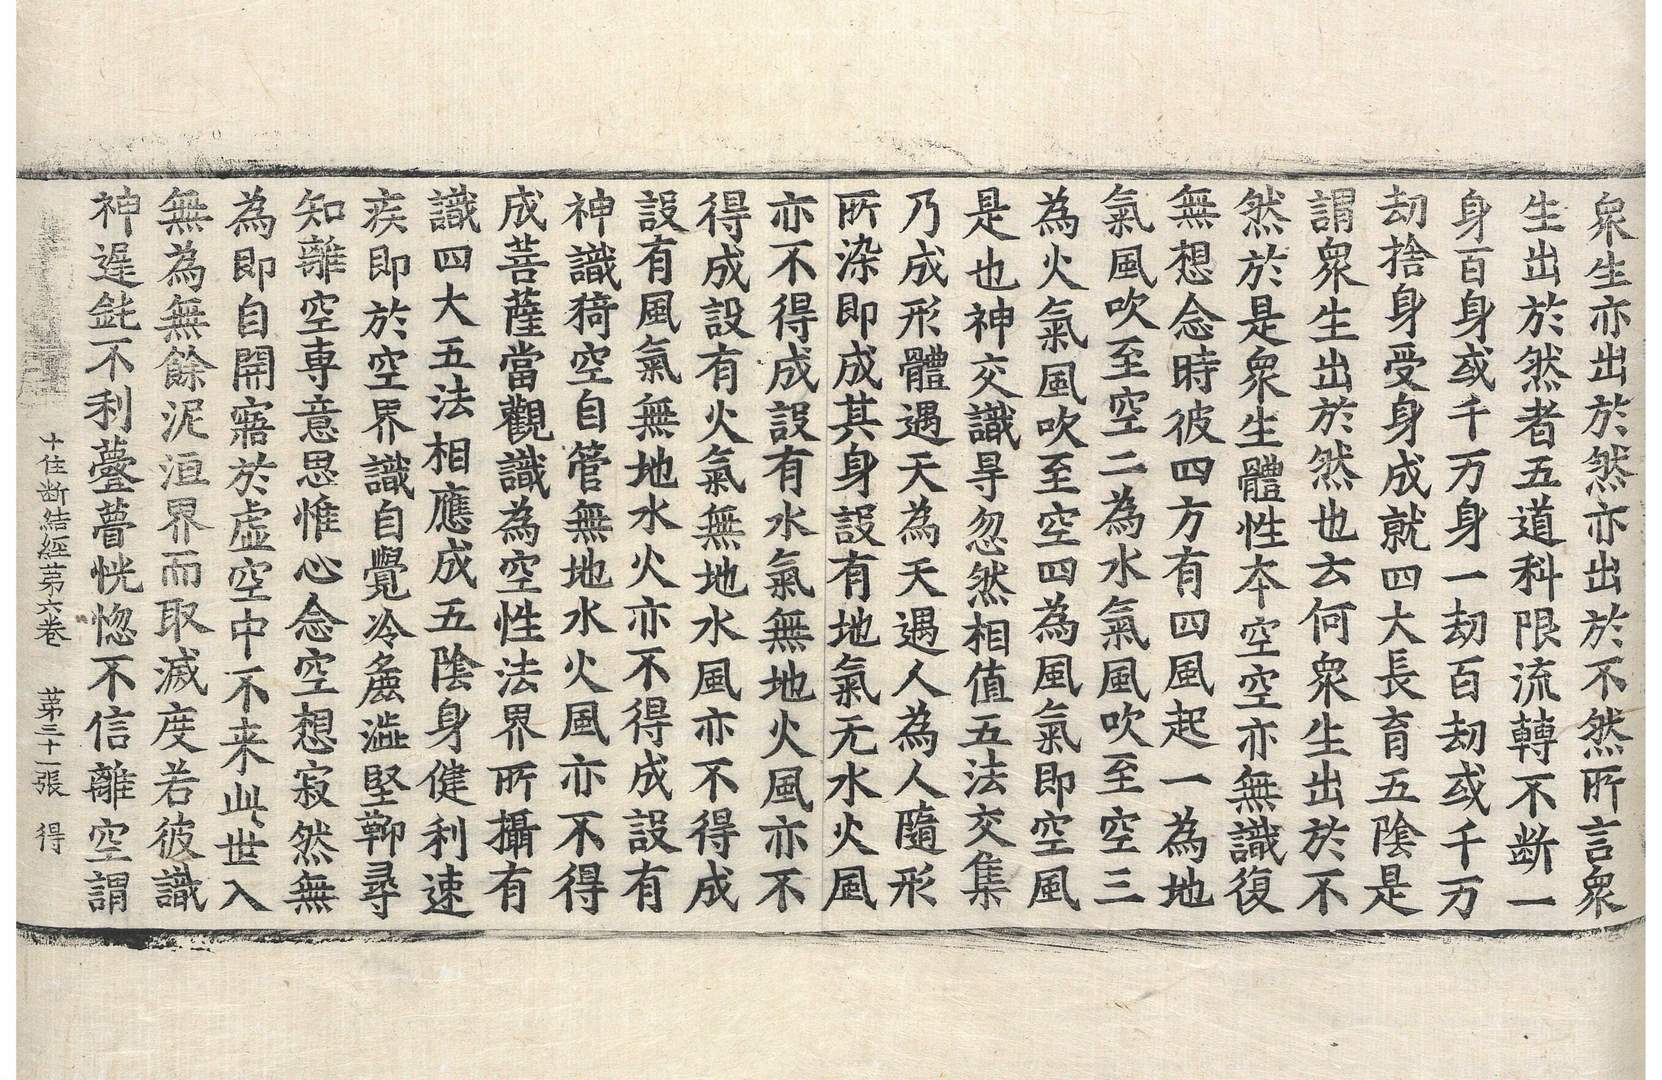 衆生亦出於然亦出於不然所言衆
生出於然者五道科限流轉不断一
身百身或千万身一劫百劫或千万
劫捨身受身成就四大長育五陰是
謂衆生出於然也云何衆生出於不
然於是衆生體性本空空亦無識復
無想念時彼四方有四風起一為地
氣風吹至空二為水氣風吹至空三
為火氣風吹至空四為風氣即空風
是也神交識㝵忽然相值五法交集
乃成形體遇天為天遇人為人隨形
所染即成其身設有地氣无水火風
亦不得成設有水氣無地火風亦不
得成設有火氣無地水風亦不得成
設有風氣無地水火亦不得成設有
神識猗空自管無地水火風亦不得
成菩薩當觀識為空性法界所攝有
識四大五法相應成五陰身健利速
疾即於空界識自覺冷麁澁堅鞕尋
知離空專意思惟心念空想寂然無
為即自開寤於虛空中不来此世入
無為無餘泥洹界而取滅度若彼識
神遲鈍不利㿙瞢恍惚不信離空謂
十住断結經苐六卷 苐三十一張 得